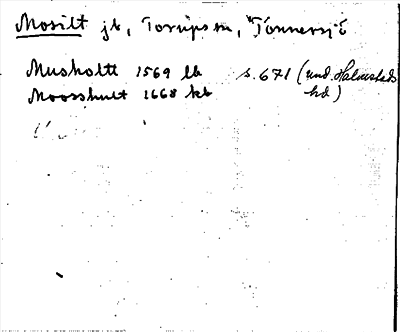 Mosilt jb, Torups sn, Tönnersjö
Musholtt 1569 lb s. 671 (und. Halmstads
Moosshult 1668 kb hd)